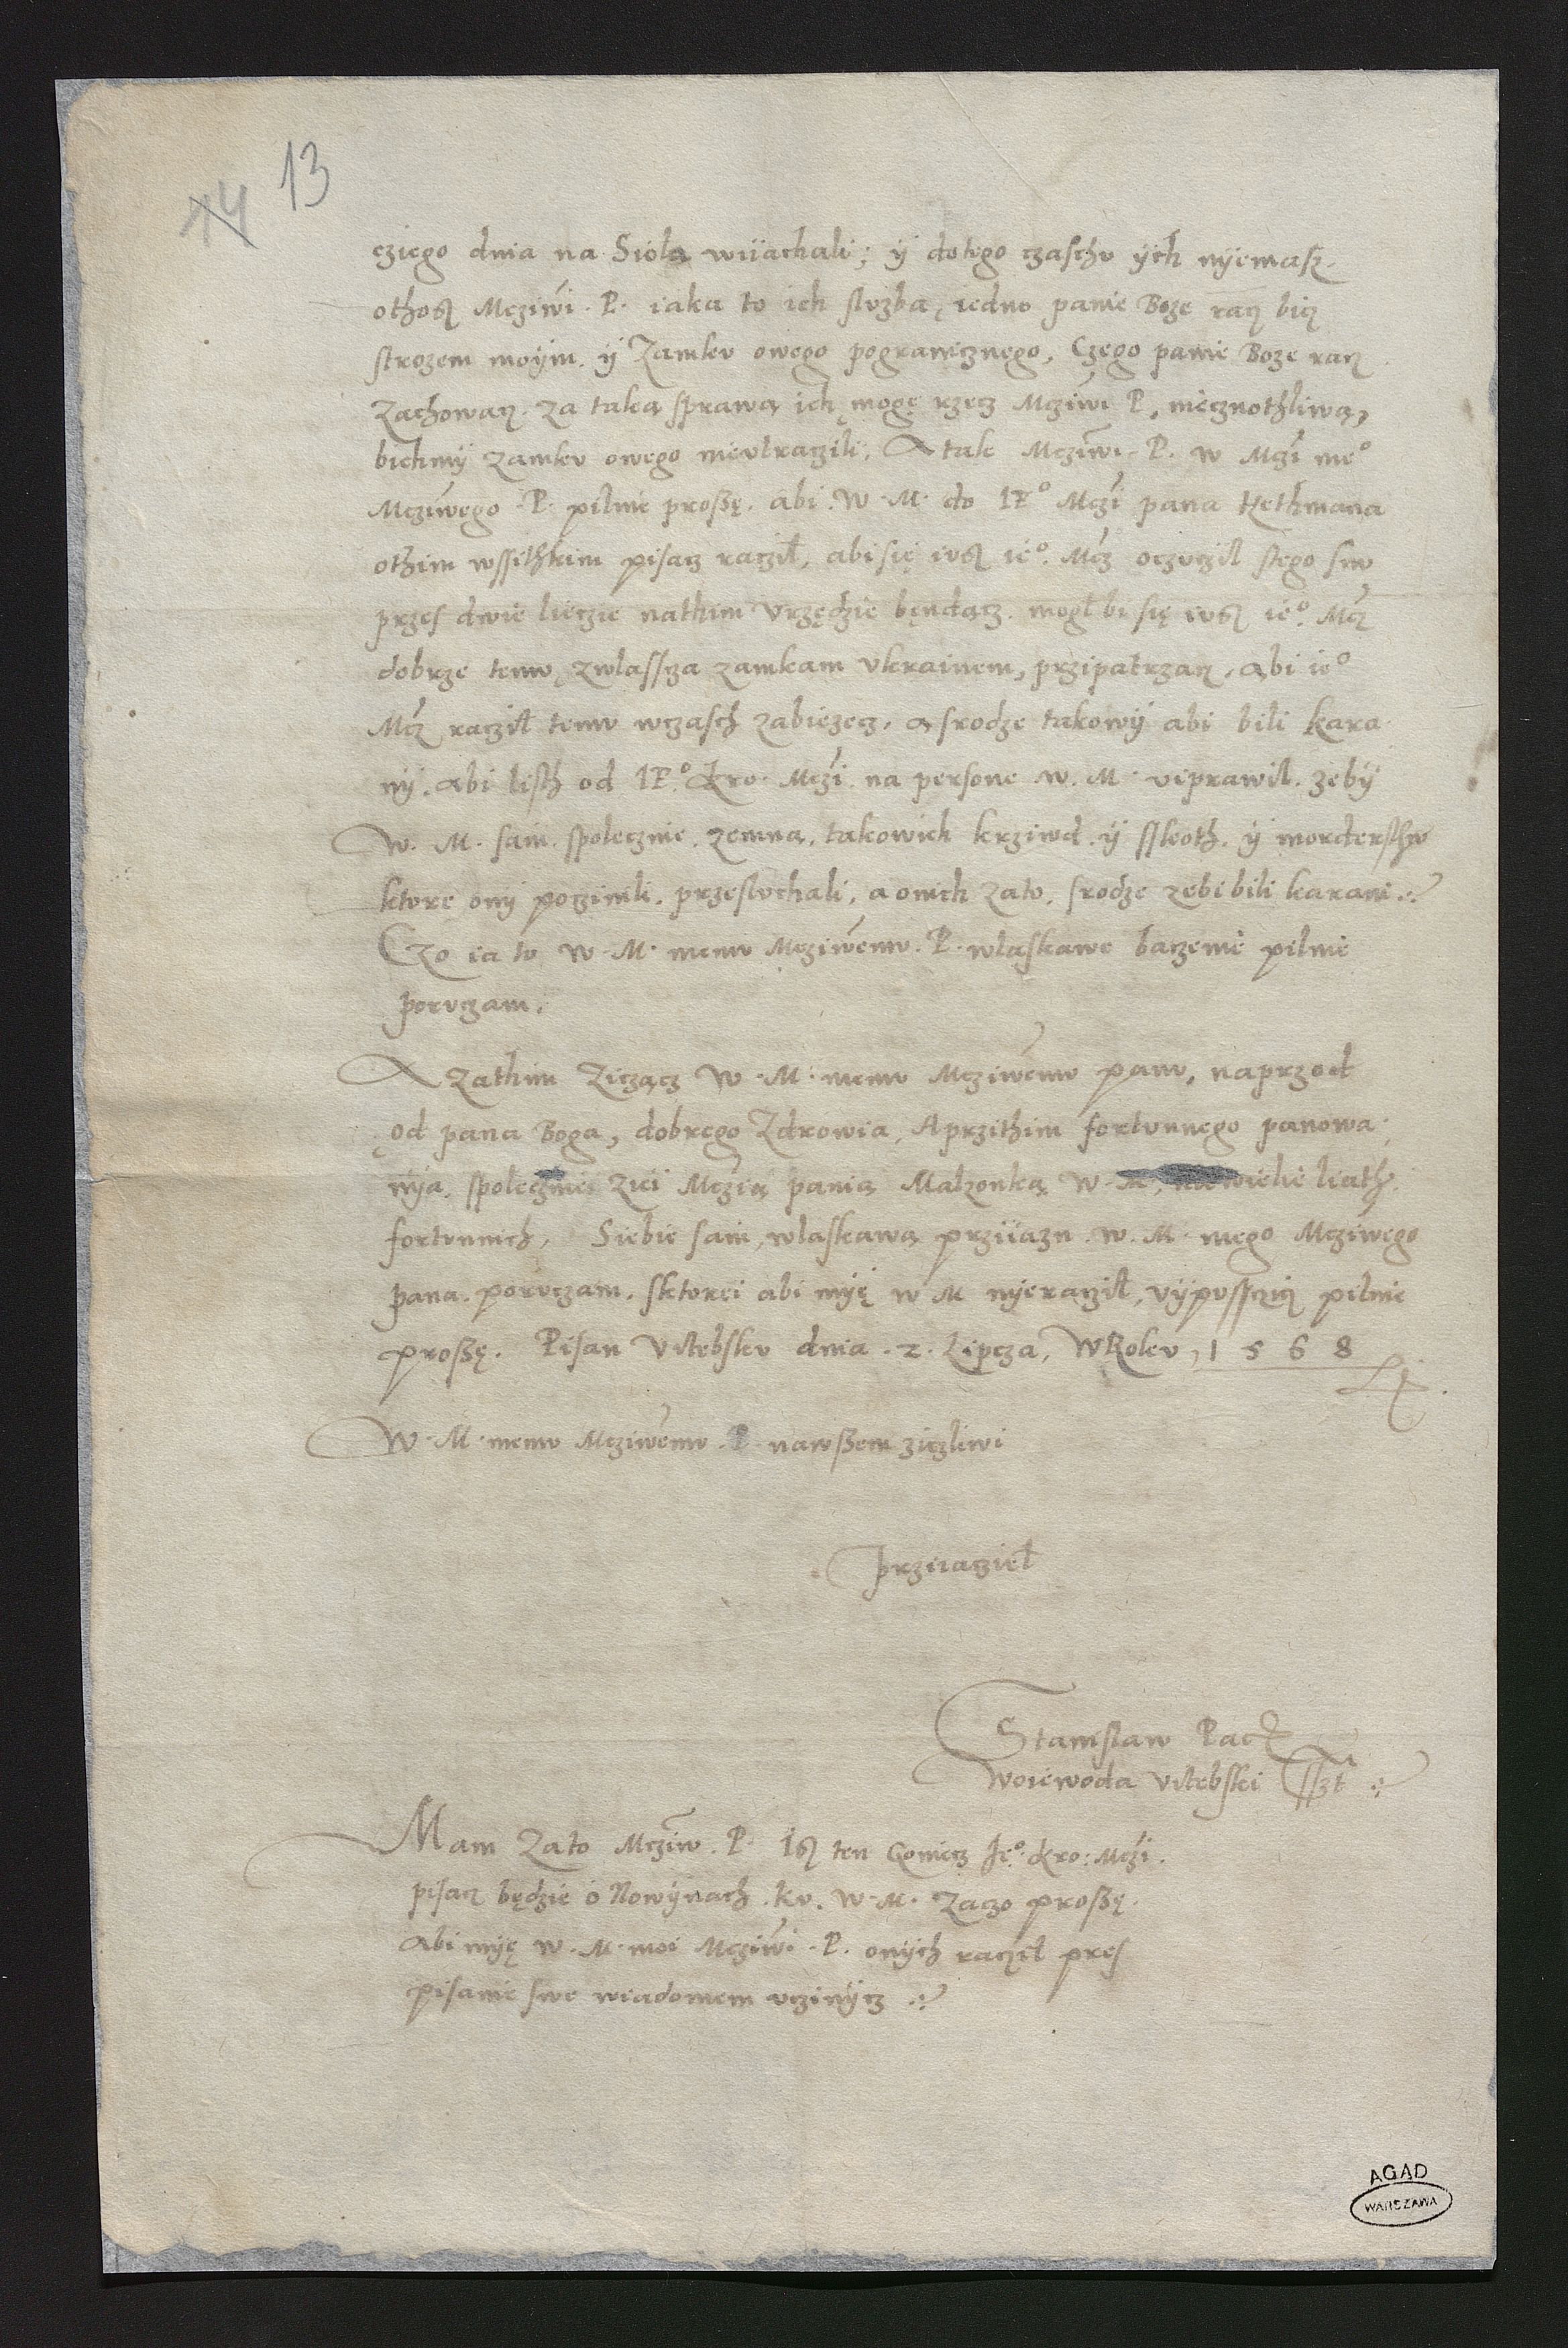 14 13
cziego dnia na Siola wiiachali; ÿ dotego czaschu ÿch nÿemasz.
othosz Mcziwi. P. iaka to ich sluzba, iedno panie Boze racz bicz
strozem moÿm. ÿ Zamku owego pogranicznego, Czego panie Boze racz
Zachowacz. za taką sprawą ich mogę rzecz Mcziwi P. niecznothliwą,
bichmÿ zamku owego nieutraczili, A tak Mcziwi. P. w Mczi me°
Mcziwego. P. pilnie proszę. abi. W. M. do IE° Mczi pana Hethmana
othim wssithkim pisacz raczil, abi się iusz ie°. Mcz oczuczil stego snu
przes dwie lieczie nathim Urzędzie będącz. mogl bi się iusz ie°. Mcz
dobrze temu, zwlascza zamkam Ukrainem, przipatrzacz, abi ie°
Mcz raczil temu wczasch zabiezecz, a srodze takowÿ abi bili kara
nÿ. abi listh od IE°. kro. Mczi na persone w. M. viprawil. zebÿ
W. M. sam. spolecznie. zemną. takowich krziwd. ÿ sskoth. ÿ mordersthw
ktore onÿ poczinili. przesluchali, a onich zato. srodze zebi bili karani.
Czo ia to W. M. memu Mcziwemu. P. wlaskawe baczenie pilnie
poruczam.
A zathim Ziczącz W. M. memu Mcziwemu panu, naprzod
od pana Boga, dobrego Zdrowia, Aprzithim fortunnego panowa
nÿa. spolecznie Zieÿ Mczią panią Malzonką W. M. wielie liath.
fortunnich, Siebie sam, wlaskawą prziiazn. w. M. mego Mcziwego
pana. poruczam. sktorei abi mÿę w M nÿeraczil, vÿpussczicz pilnie
proszę. Pisan Vitebsku dnia. 2. Lipcza, WRoku, 1568
W. M. memu Mcziwemu. P. nawszem zicliwi
prziiaciel
Stanislaw Pacz
woiewoda vitebski
Mam Zato Mcziw. P. Isz ten Goniecz Je°. kro: Mczi.
pisacz będzie o Nowÿnach. ku. W. M. Zaczo proszę.
abi mÿę w. M. moi Mcziwi. P. onÿch raczil pres
pisanie swe wiadomem uczinÿcz
AGAD
WARSZAWA